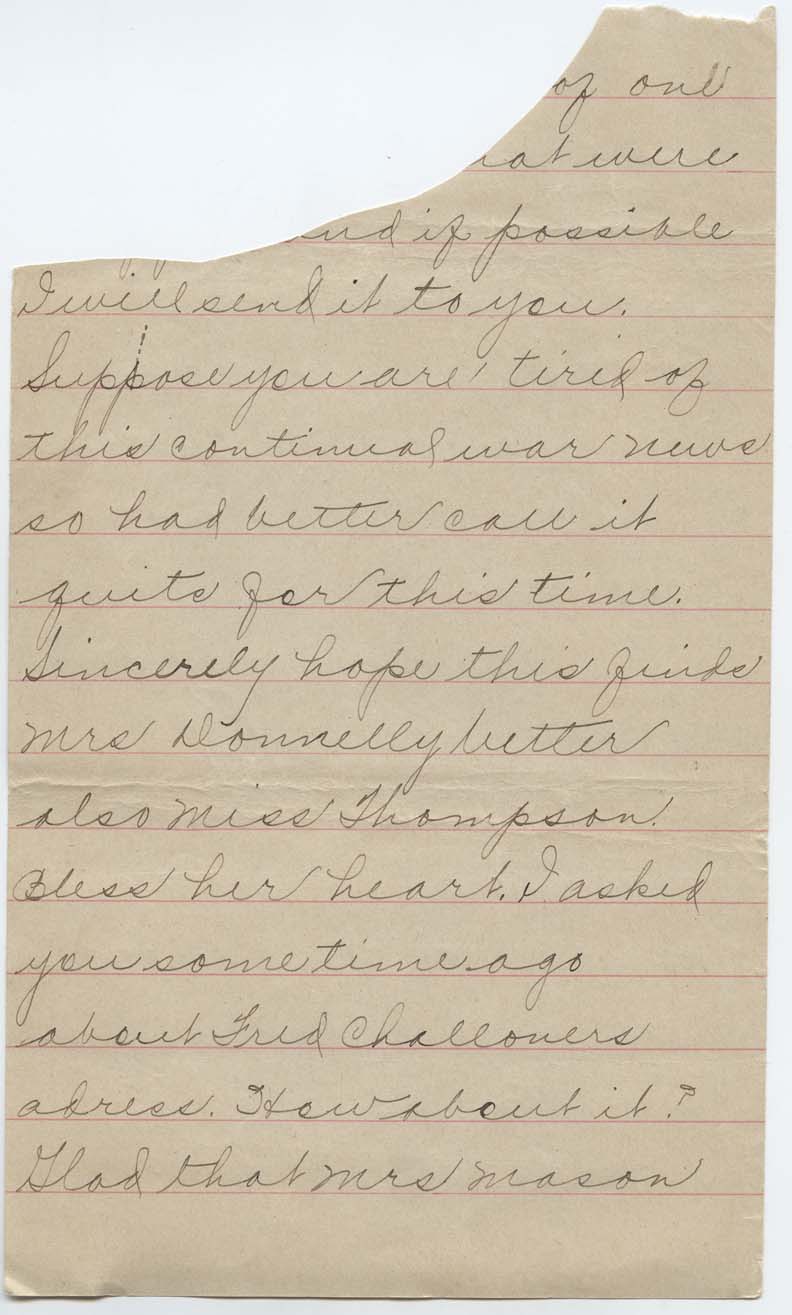 of one
were
if possible
I will send it to you.
Suppose you are tired of
this continual war news
so had better call it
quits for this time.
Sincerely hope this finds
Mrs Donnelly better
also Miss Thompson.
Bless her heart. I asked
you sometime ago
about Fred Challoners
adress. How about it?
Glad that Mrs Mason